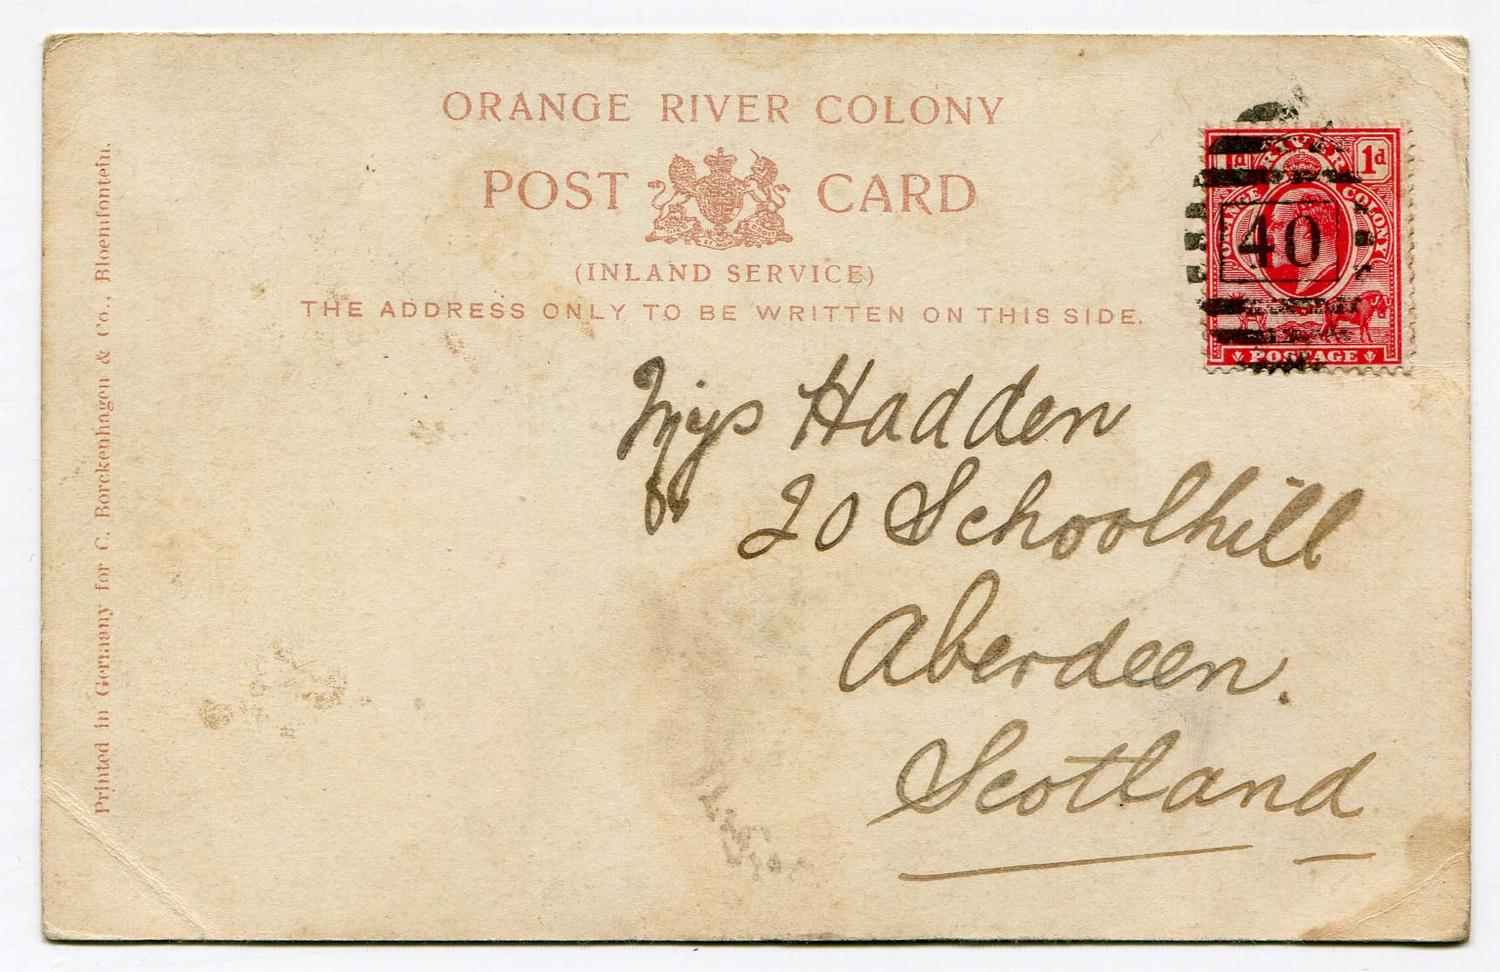 ORANGE RIVER COLONY
POST CARD
(INLAND SERVICE)
THE ADDRESS ONLY TO BE WRITTEN ON THIS SIDE.
1d RIVER 1d
ORANGE COLONY
40
POSTAGE
Hadden
20 Schoolhill
Aberdeen.
Scotland
Printed in Germany for C. Borckenhagen & Co., Bloemfontein.